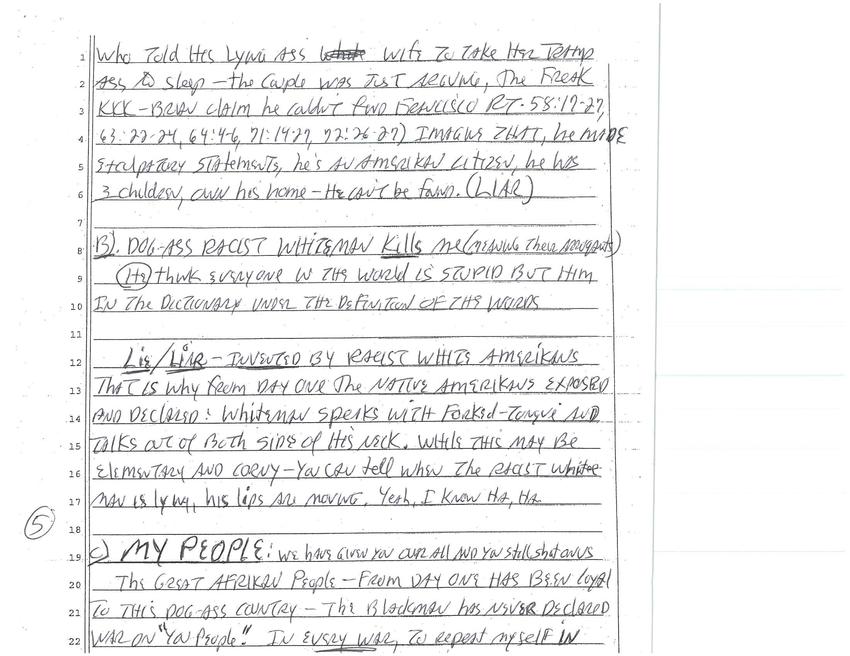 1 Who Told His Lying Ass wife To Take Her TRAMP
2 ASS To sleep - the Couple WAS JUST ARGUING, The FREAK
3 KKK-BRIAN claim he couldn't find FRANCISCO RT. 58:17-27,
4 63:22-24, 64:4-6, 71:14-27, 72:26-27) IMAGINE THAT, he MADE
5 Exculpatory STATEMENTS, he's AN AMERIKAN citizen, he has
6 3 children, own his home - He can't be found. (LIAR)
7
8 B). DOG-ASS RACIST WHITEMAN Kills me (MEANING Their ARROGANTS)
9 (He) think EVERYONE IN THE World IS STUPID BUT HIM
10 IN The DICTIONARY UNDER THE DEFINITION OF THE WORDS
11
12 Lie/LIAR - INVENTED BY RACIST WHITE AMERIKANS
13 THAT IS Why from DAY ONE The NATIVE AMERIKANS EXPOSED
14 AND DECLARED: Whiteman speaks with Forked-Tongue AND
15 TALKS out of Both sides of His NECK. WHILE THIS MAY BE
16 ELEMENTARY AND CORNY - You CAN tell when The RACIST White
17 MAN is lying, his lips ARE moving. Yeah, I know HA, HA
18
5
19 C) MY PEOPLE: WE HAVE GIVEN YOU OUR All AND YOU still shat on us
20 The GREAT AFRIKAN People - FROM DAY ONE HAS BEEN loyal
21 To THIS DOG-ASS COUNTRY - The Blackman has NEVER DECLARED
22 WAR ON "You People". IN EVERY WAR, To repeat myself IN